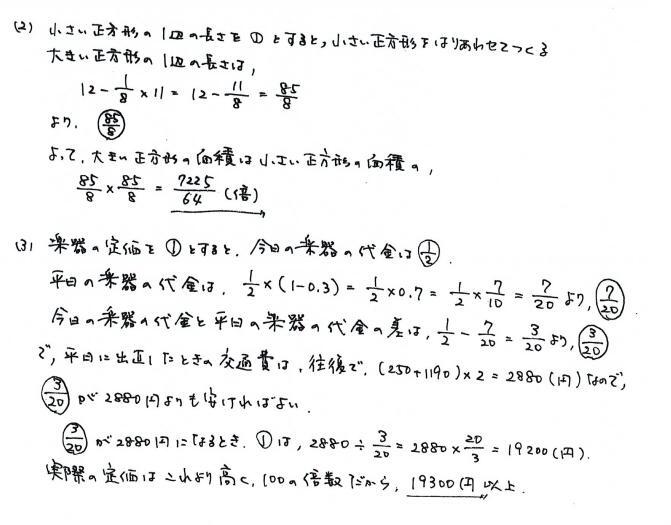 (2) 小さい正方形の1辺の長さを①とすると,小さい正方形をはりあわせてつくる
大きい正方形の1辺の長さは,
12 - 1/8 × 11 = 12 - 11/8 = 85/8
より, (85/8)
よって,大きい正方形の面積は小さい正方形の面積の,
85/8 × 85/8 = 7225/64 (倍)
(3) 楽器の定価を①とすると,今日の楽器の代金は(1/2).
平日の楽器の代金は, 1/2 × (1-0.3) = 1/2 × 0.7 = 1/2 × 7/10 = 7/20 より, (7/20)
今日の楽器の代金と平日の楽器の代金の差は, 1/2 - 7/20 = 3/20 より, (3/20)
で,平日に出直したときの交通費は,往復で, (250+1190)×2 = 2880 (円) なので,
(3/20) が2880円よりも安ければよい.
(3/20) が2880円になるとき, ①は, 2880 ÷ 3/20 = 2880 × 20/3 = 19200 (円).
実際の定価はこれより高く, 100の倍数だから, 19300円以上.